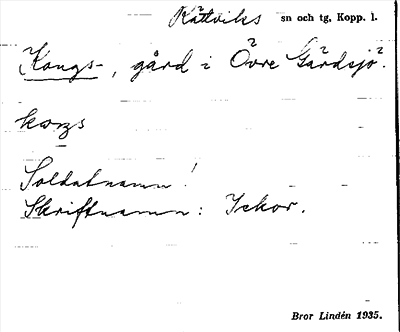 Rättviks sn och tg, Kopp. l.
Kongs-, gård i Övre Gärdsjö.
kɷŋs
Soldatnamn!
Skriftnamn: Ickor.
Bror Lindén 1935.